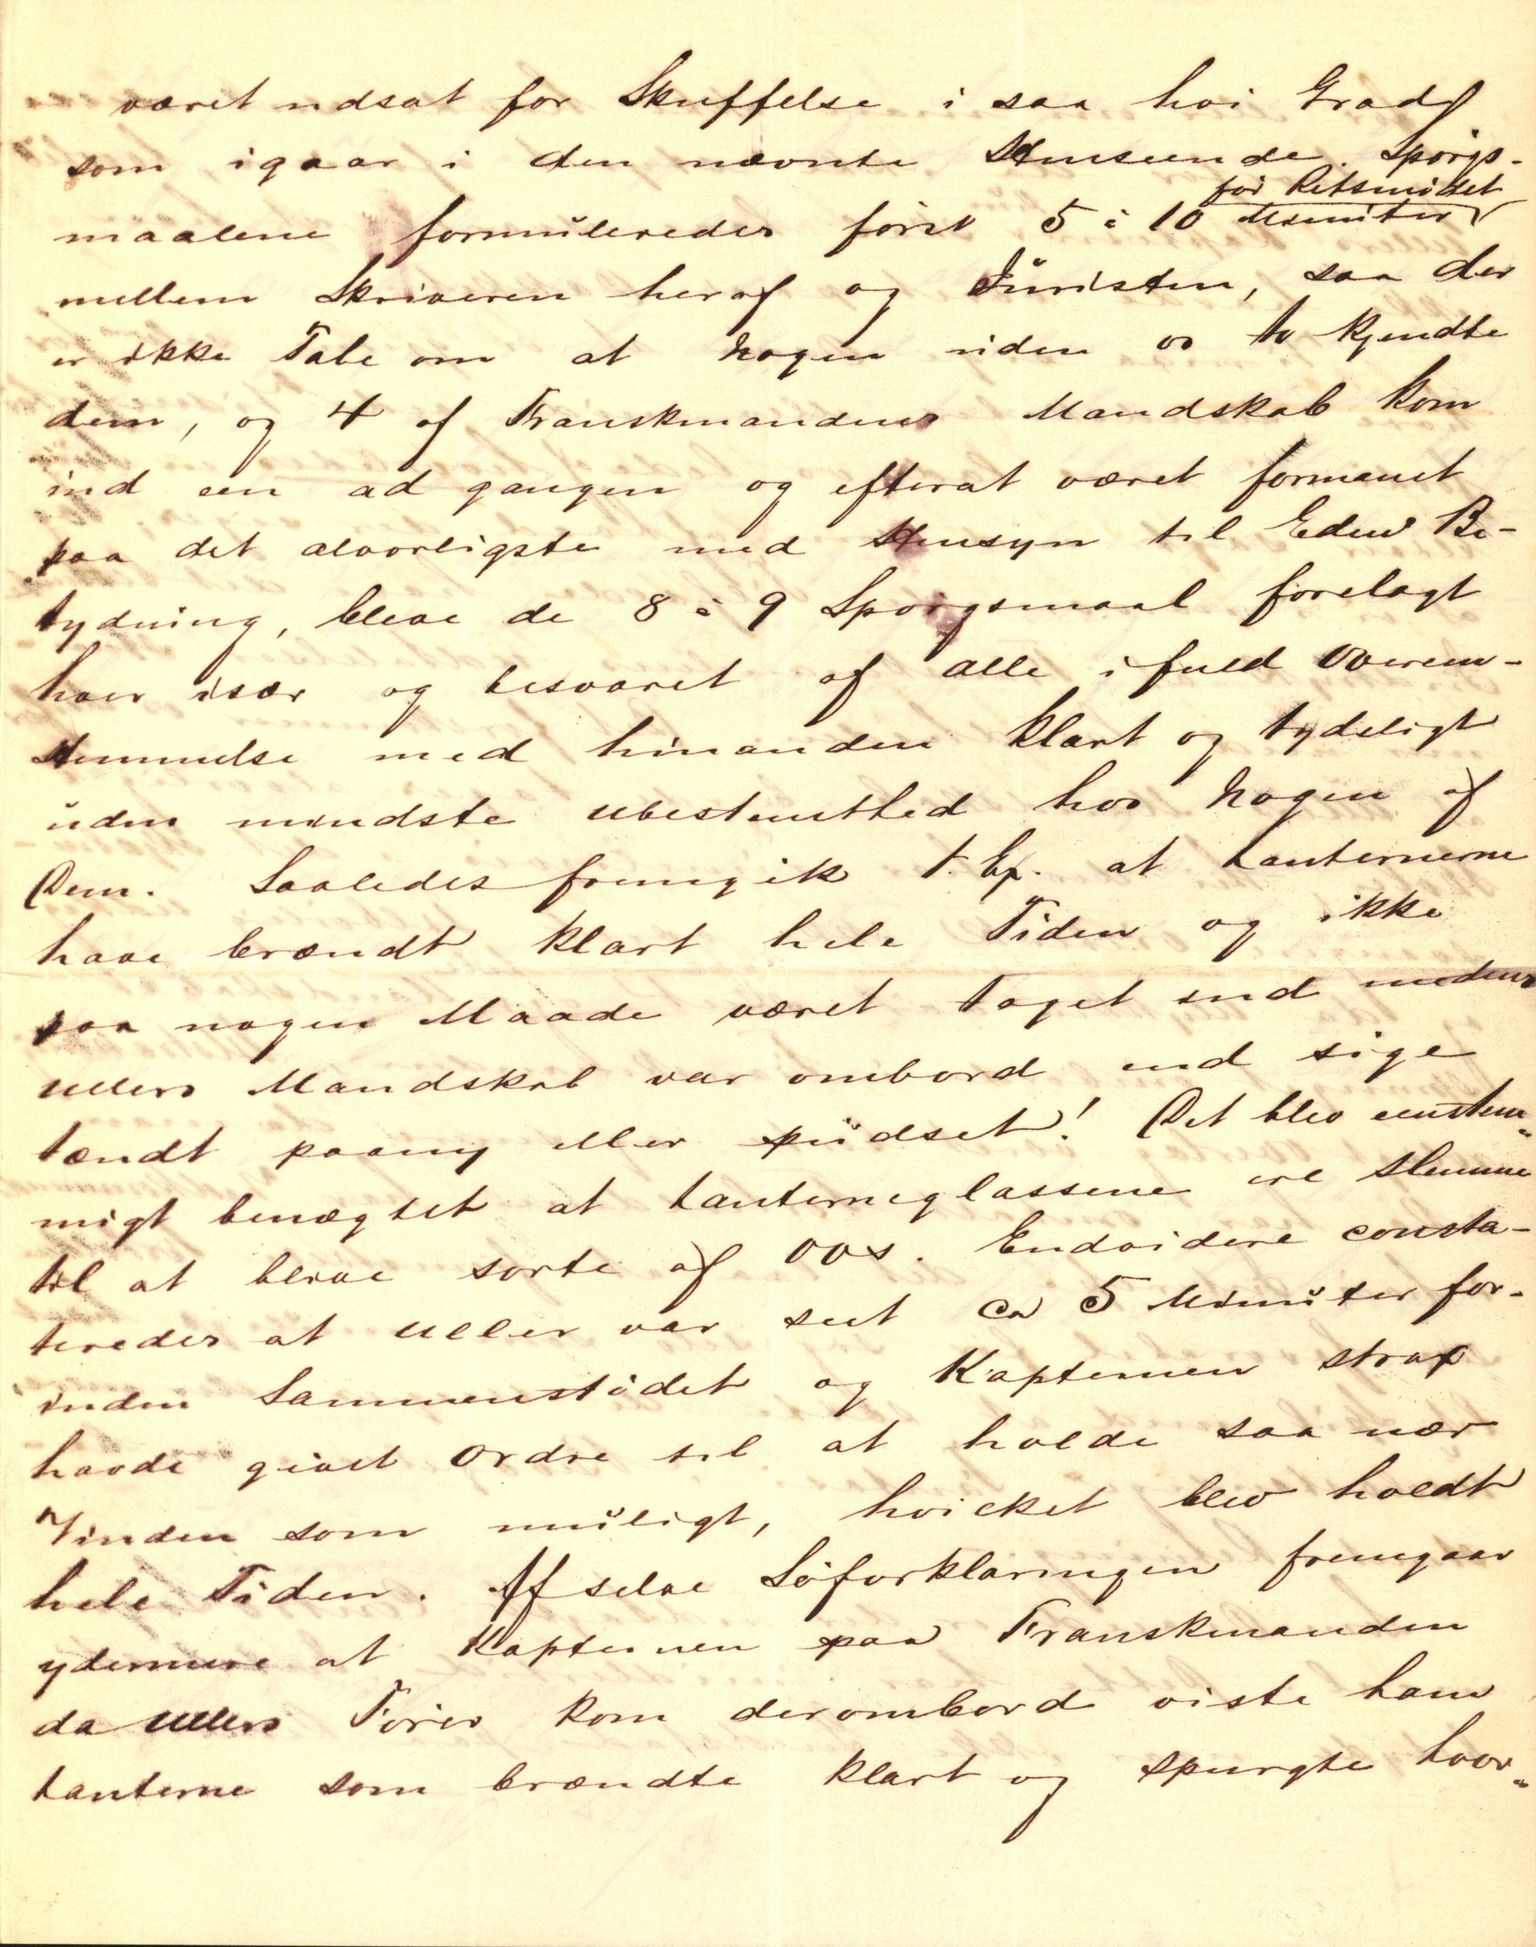 været udsat for Skuffelse i saa høi Grad
som igaar i den nævnte Henseende. Spörgs-
för Retsmödet
maalene formüleredes först 5 à 10 Minuter
mellem Skriveren heraf og Juristen, saa der
er ikke Tale om at Nogen uden os to kjendte
dem, og 4 af Franskmandens Mandskab kom
ind een ad gangen og efterat været formanet
paa det alvorligste med Hensyn til Edens Be-
tydning, bleve de 8 à 9 Spörgsmaal forelagt
hver især og besvaret af alle i fuld Overen-
stemmelse med hinanden klart og tydeligt
uden mindste Ubestemthed hos Nogen af
Dem. Saaledes fremgik t. Ex. at Lanternerne
have brændt klart hele Tiden og ikke
paa nogen Maade været taget ind medens
Ullers Mandskab var ombord end sige
tændt paany eller püdset! Det blev eenstem-
migt benægtet at Lanterneglassene ere slemme
til at blive sorte af Oos. Endvidere consta-
teredes at Uller var seet ca 5 Minüter for-
inden Sammenstödet og Kapteinen strax
havde givet Ordre til at holde saa nær
Vinden som müligt, hvilket blev holdt
hele Tiden. Af selve Söforklaringen fremgaar
ydermere at Kapteinen paa Franskmanden
da Ullers Förer kom derombord viste ham
Lanterne som brændte klart og spurgte hvor-